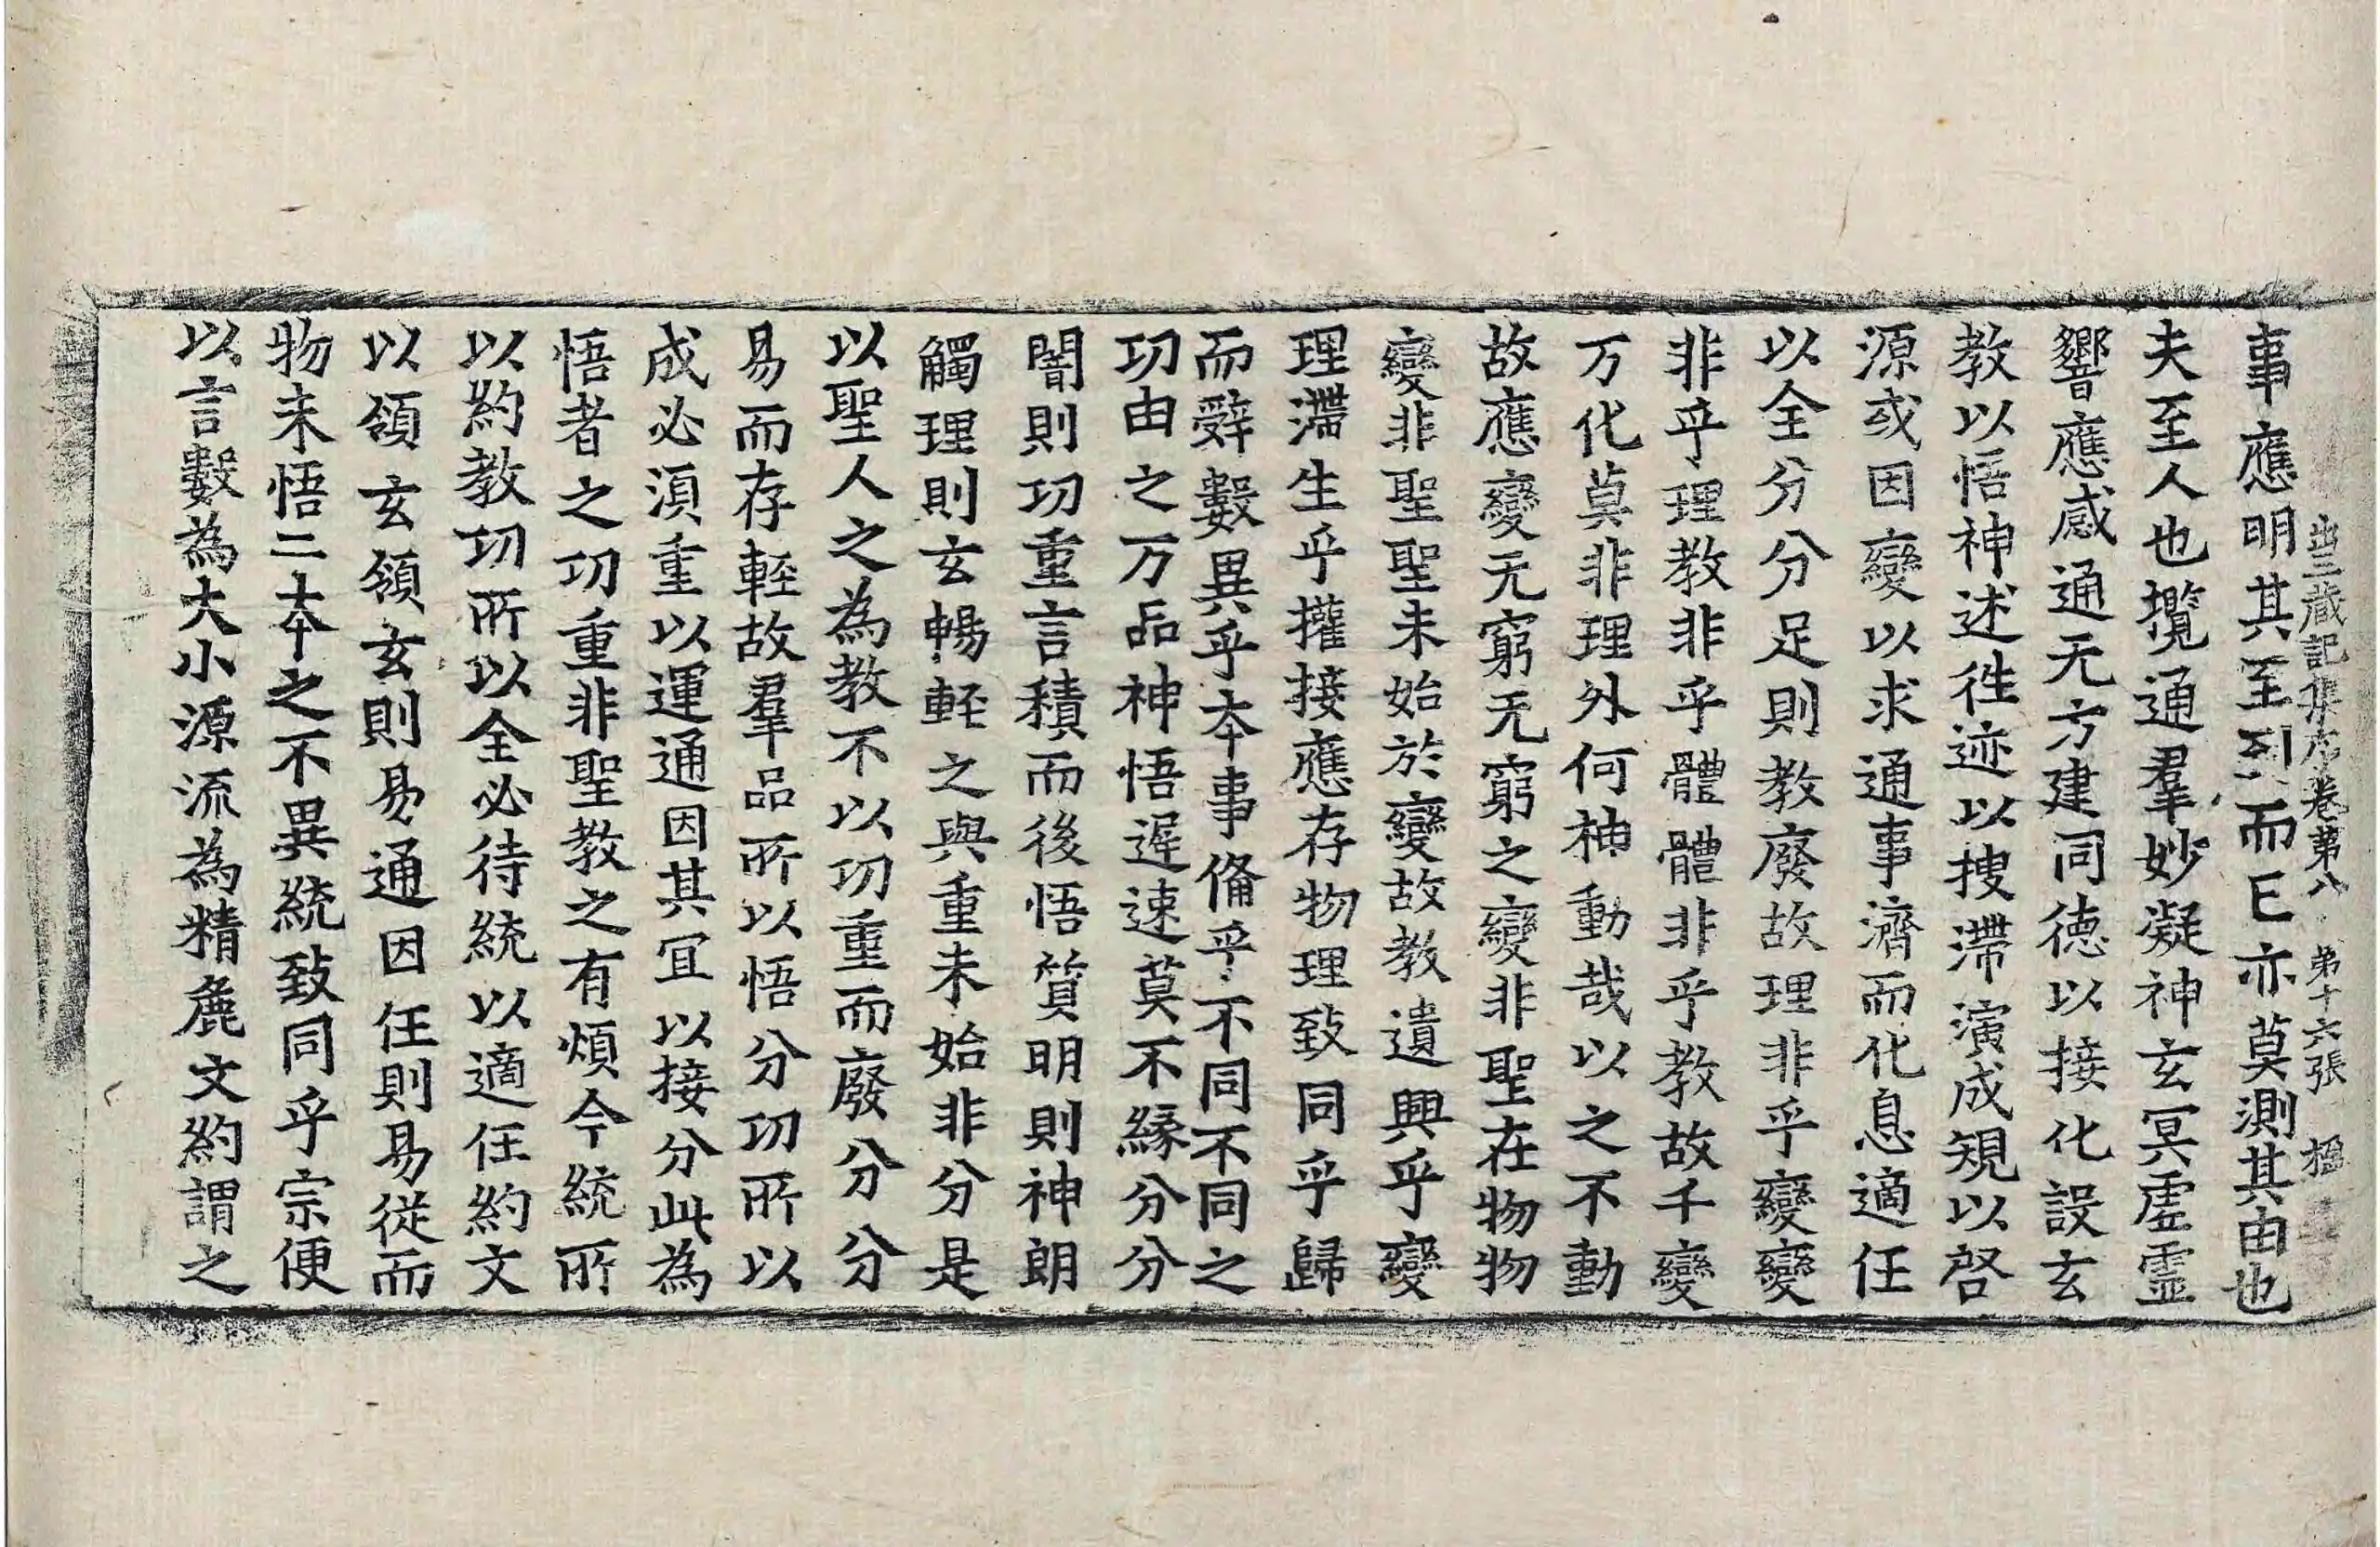 出三藏記集序卷第八 第十六張 楹
事應明其至到而已亦莫測其由也
夫至人也攬通羣妙凝神玄冥虛靈
響應感通无方建同德以接化設玄
教以悟神述徃迹以搜滯演成規以啓
源或因變以求通事濟而化息適任
以全分分足則教廢故理非乎變變
非乎理教非乎體體非乎教故千變
万化莫非理外何神動哉以之不動
故應變无窮无窮之變非聖在物物
變非聖聖未始於變故教遺興乎變
理滯生乎權接應存物理致同乎歸
而辤數異乎夲事俻乎不同不同之
功由之万品神悟遲速莫不縁分分
闇則功重言積而後悟質明則神朗
觸理則玄暢輕之與重未始非分是
以聖人之為教不以功重而廢分分
易而存輕故羣品所以悟分功所以
成必湏重以運通因其冝以接分此為
悟者之功重非聖教之有煩今統所
以約教功所以全必待統以適任約文
以領玄領玄則易通因任則易從而
物未悟二夲之不異統致同乎宗便
以言數為大小源流為精麁文約謂之